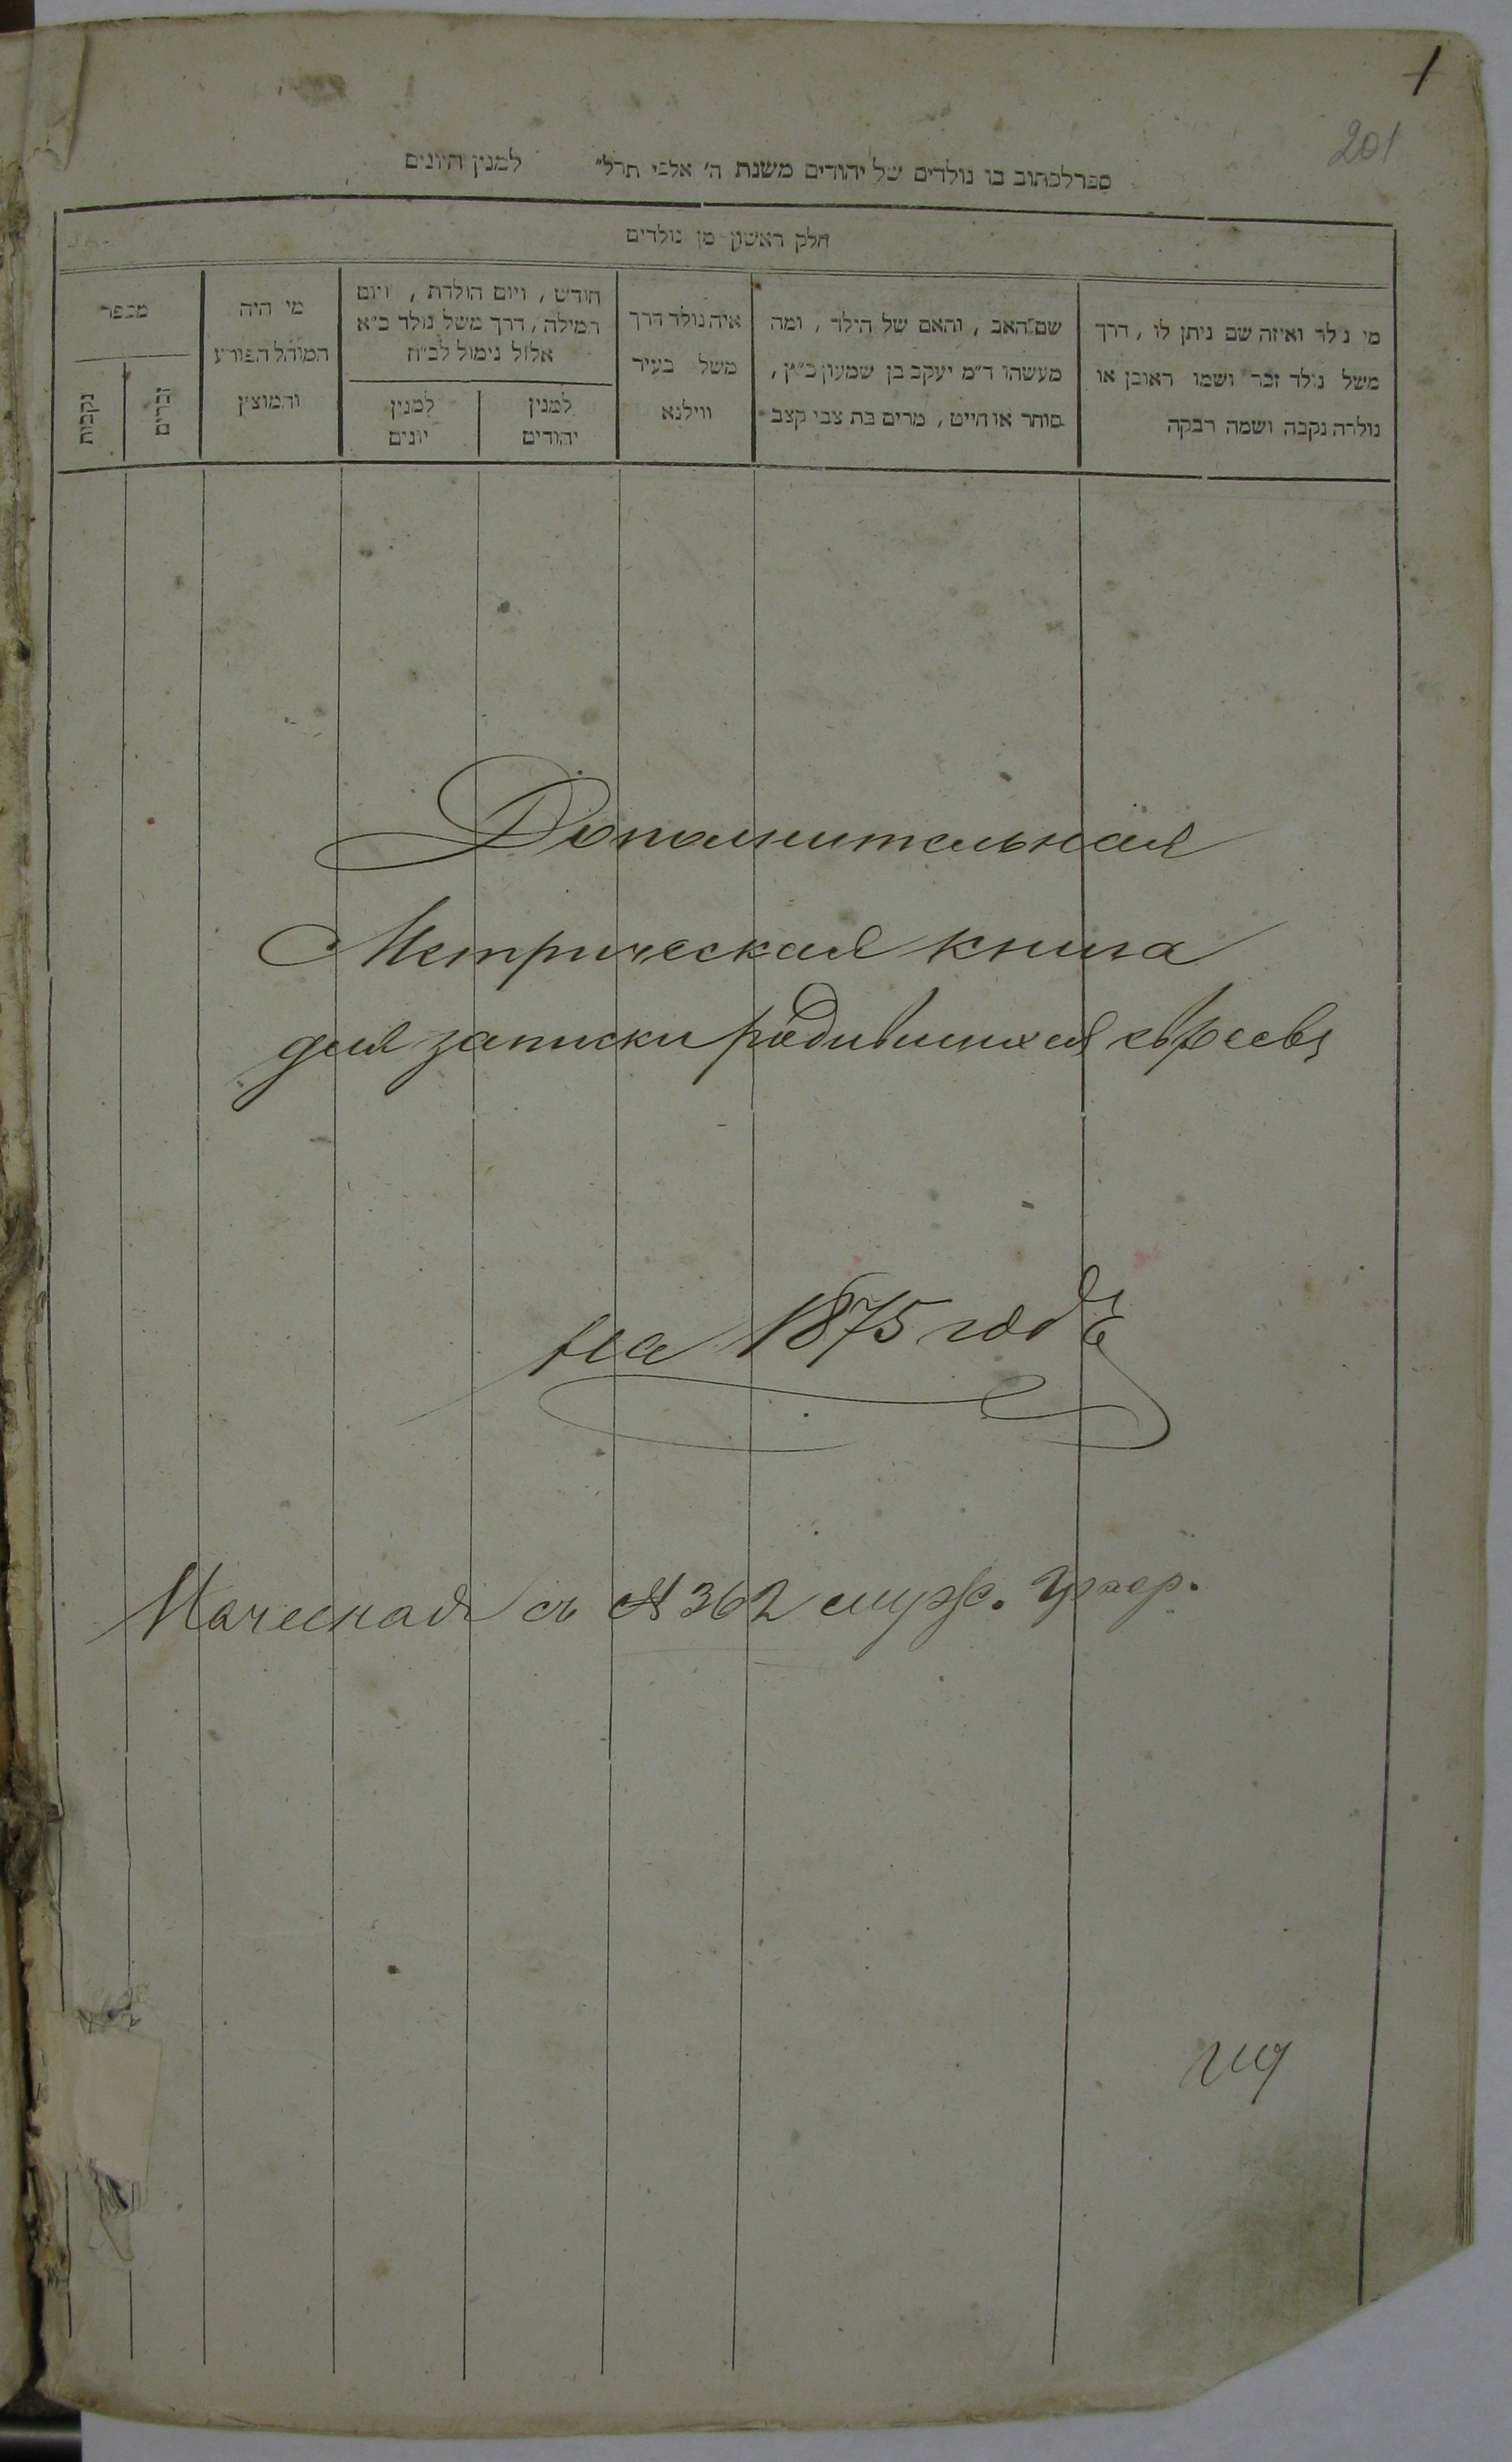 1
201
ספר לכתוב בו נולדים של יהודים משנת ה' אלפי תרל" למנין היונים
חלק ראשון מן נולדים
מי נולד ואיזה שם ניתן לו, דרך
משל נולד זכר ושמו ראובן או
נולדה נקבה ושמה רבקה
שם האב, והאם של הילד, ומה
מעשהו ד"מ יעקב בן שמעון כ"ץ,
סוחר או חייט, מרים בת צבי קצב
איה נולד דרך
משל בעיר
ווילנא
חודש, ויום הולדת, ויום
המילה, דרך משל נולד כ"א
אלול נימול לכ"ח
למנין
יהודים
למנין
יונים
מי היה
המוהל הפורע
והמוצץ
מספר
זכרים
נקבות
Дополнительная
Метрическая книга
для записки родившихся евреевъ
на 1875 годъ
съ № 362